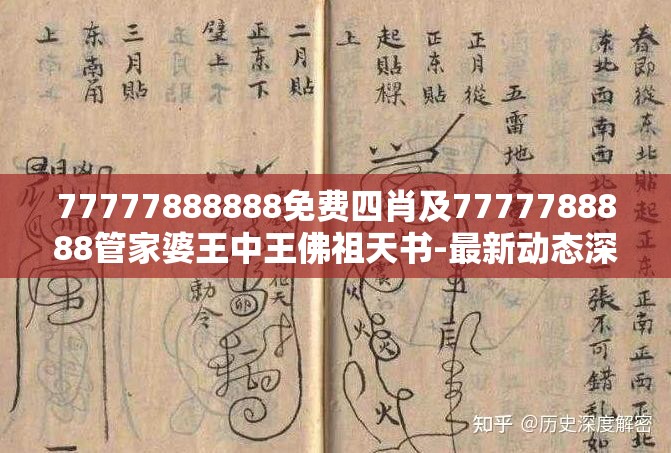 春即從东北貼
正南正西正
东北西南西
一張不可錯乱如
五雷地支
正月從
正东貼
起貼樑
上
二月貼
正东下
壁上
三月貼
东南角
上
77777888888免费四肖及7777788888
88管家婆王中王佛祖天书-最新动态深
勅令
火
火
火
知乎 @历史深度解密